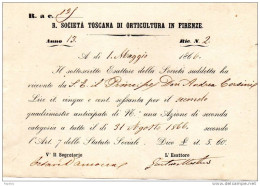 R. a c. 131
R. SOCIETÀ TOSCANA DI ORTICULTURA IN FIRENZE.
Anno 13. Ric. N. 2
A dì 1. Maggio 1866.
Il sottoscritto Esattore della Società suddetta ha
ricevuto da S. E. il Principe Don Andrea Corsini
Lire it. cinque e cent. sessanta per il secondo
quadrimestre anticipato di N. una Azione di seconda
categoria a tutto il dì 31 Agosto 1866. secondo
l'Art. 7 dello Statuto Sociale. Dico L. it. 5. 60.
V.° Il Segretario L'Esattore